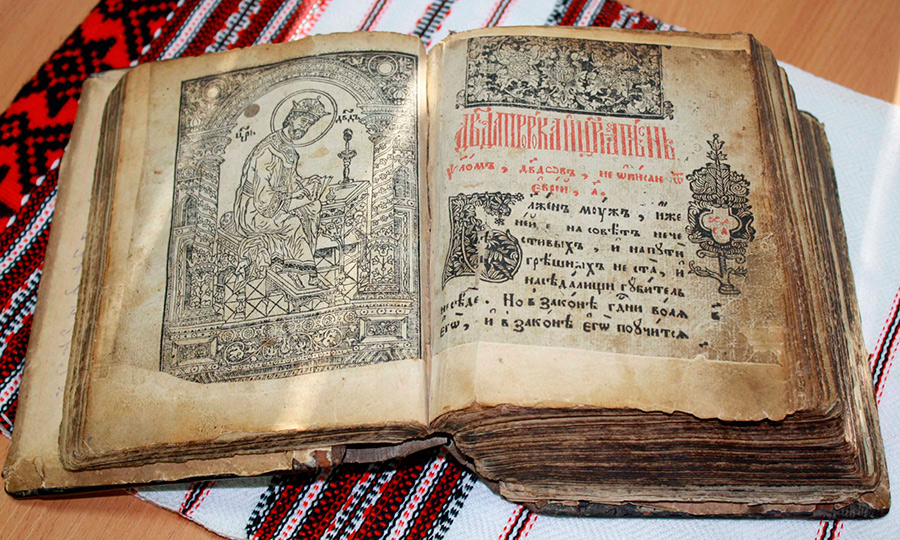 Дв҃да прⷪ҇рока и цр҃ѧ пѣснь
ѱаломъ, дв҃довъ, не ѡписан ѿ
еврей, а҃.
Блаженъ моужъ, иже
не иде на совѣтъ нече
стивыхъ, и на пути
грѣшныхъ не ста, и
на сѣдалищи гꙋбитель
не сѣде. Но в законѣ гдⷭ҇ни волѧ
егѡ, и в законѣ егѡ поучитсѧ